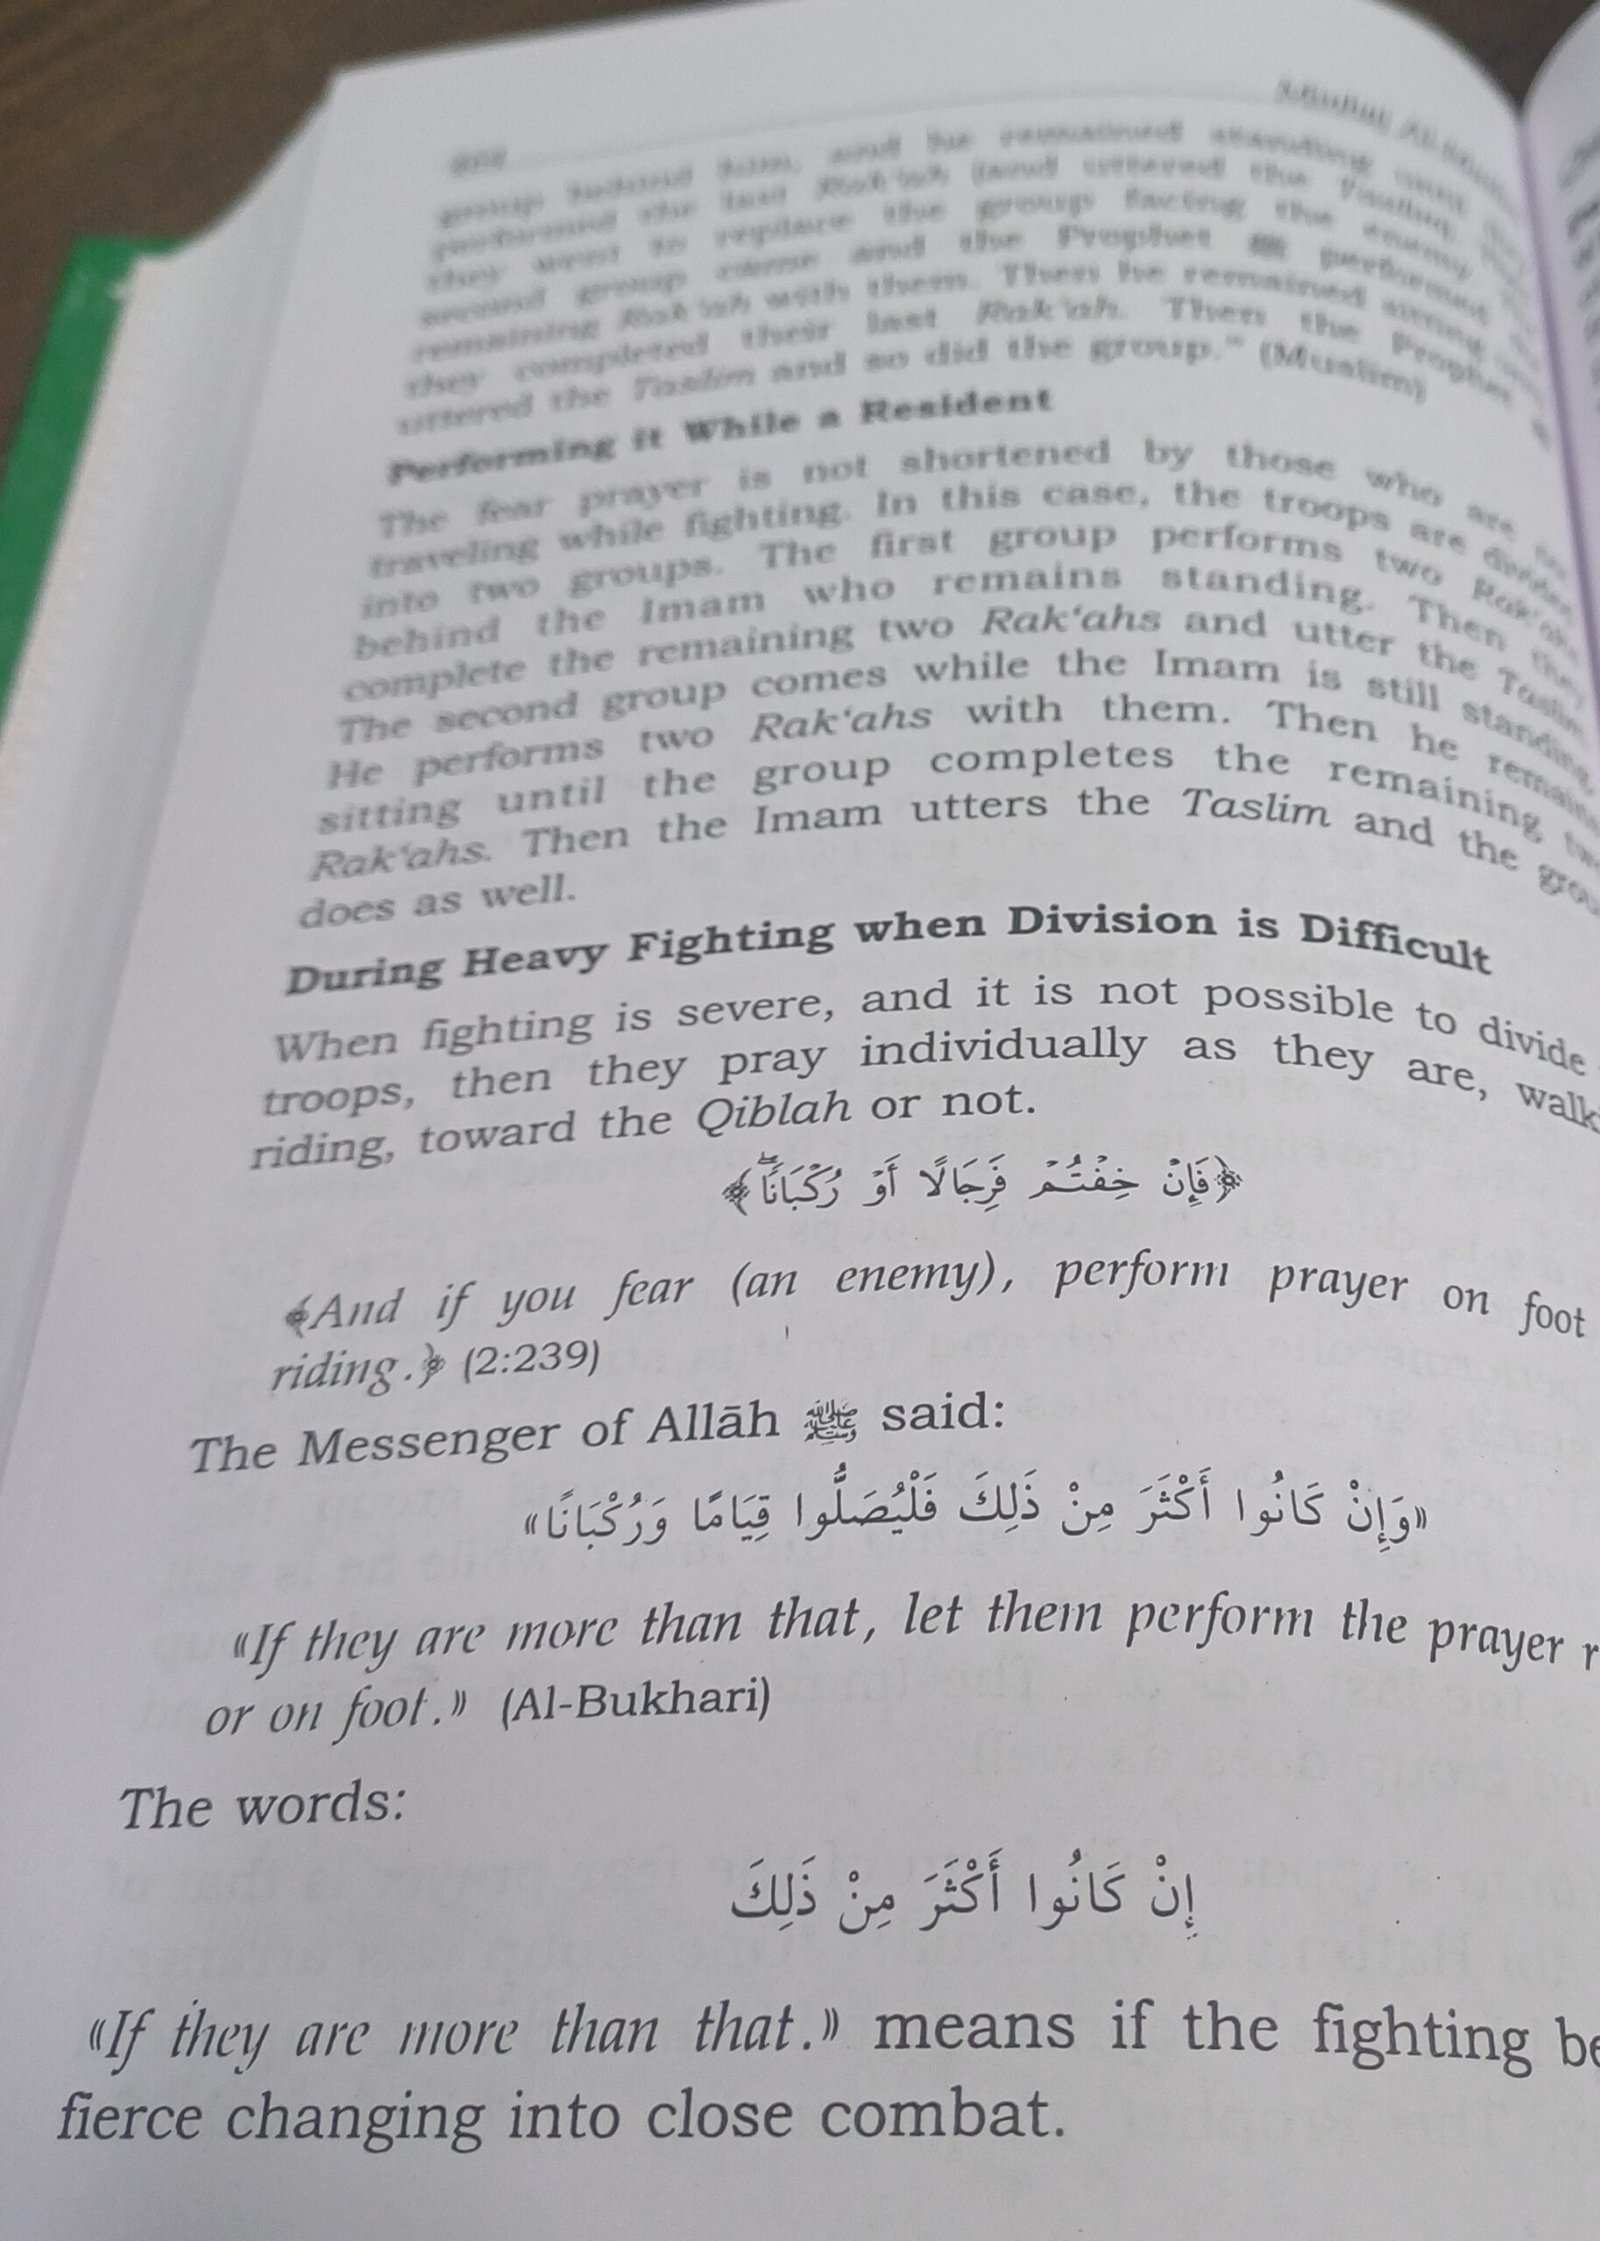 Minhaj Al-Muslim
group behind him, and he remained standing until they
performed the last Rak'ah (and uttered the Taslim).
they went to replace the group facing the enemy.
second group came and the Prophet ﷺ performed
remaining Rak'ah with them. Then he remained sitting until
they completed their last Rak'ah. Then the Prophet ﷺ
uttered the Taslim and so did the group." (Muslim)
Performing it While a Resident
The fear prayer is not shortened by those who are not
traveling while fighting. In this case, the troops are divided
into two groups. The first group performs two Rak'ahs
behind the Imam who remains standing. Then they
complete the remaining two Rak'ahs and utter the Taslim.
The second group comes while the Imam is still standing.
He performs two Rak'ahs with them. Then he remains
sitting until the group completes the remaining two
Rak'ahs. Then the Imam utters the Taslim and the group
does as well.
During Heavy Fighting when Division is Difficult
When fighting is severe, and it is not possible to divide
troops, then they pray individually as they are,
riding, toward the Qiblah or not.
﴿فَإِنْ خِفْتُمْ فَرِجَالًا أَوْ رُكْبَانًا ۖ﴾
﴿And if you fear (an enemy), perform prayer on foot
riding.﴾ (2:239)
The Messenger of Allāh ﷺ said:
«وَإِنْ كَانُوا أَكْثَرَ مِنْ ذَلِكَ فَلْيُصَلُّوا قِيَامًا وَرُكْبَانًا»
«If they are more than that, let them perform the prayer
or on foot.» (Al-Bukhari)
The words:
إِنْ كَانُوا أَكْثَرَ مِنْ ذَلِكَ
«If they are more than that.» means if the fighting
fierce changing into close combat.